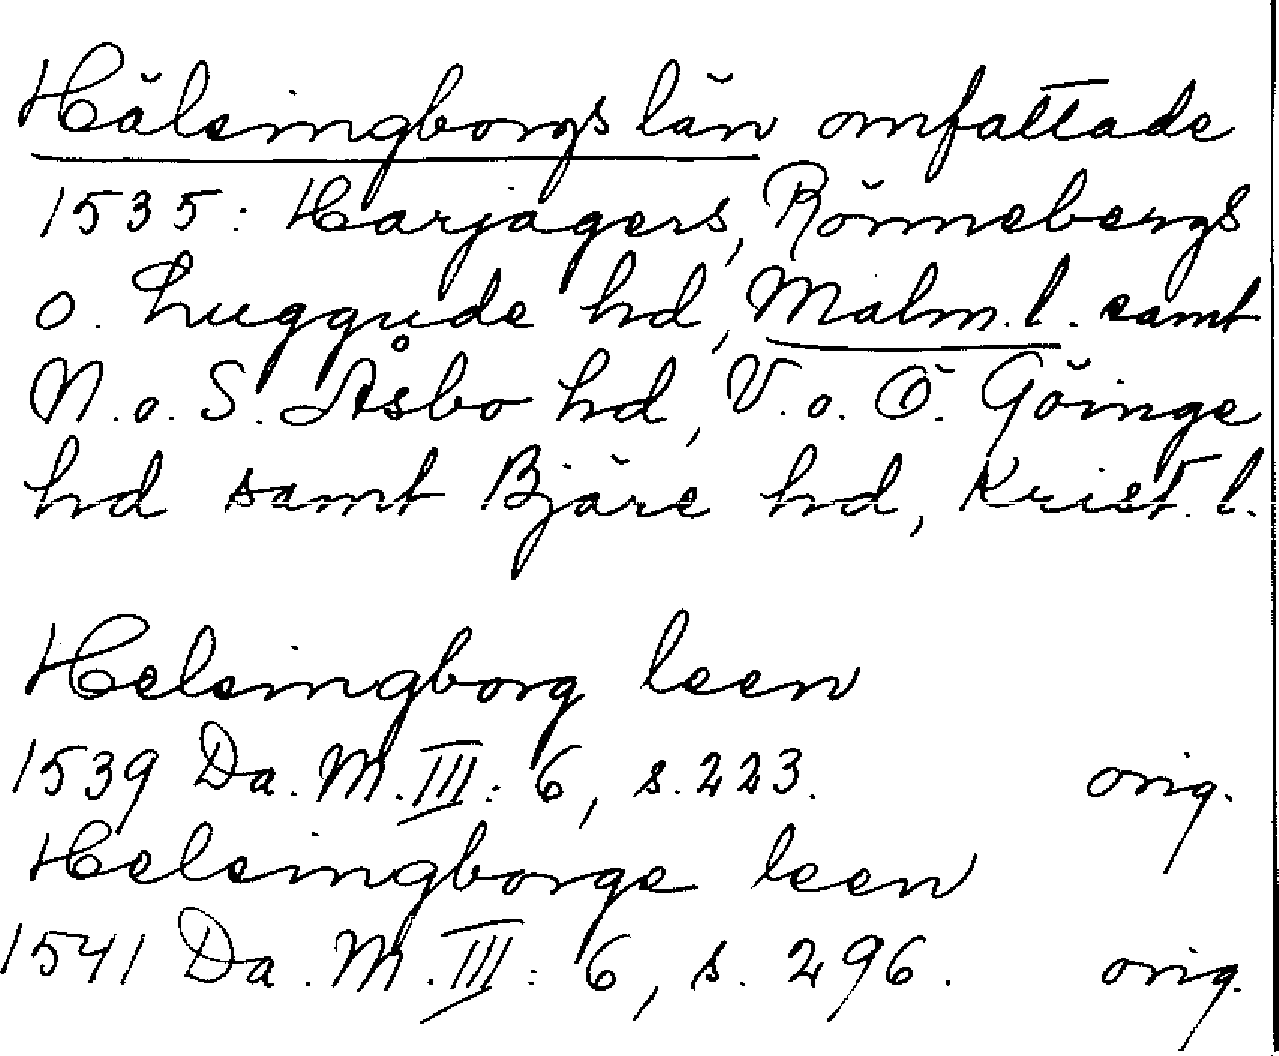 Hälsingborgs län omfattade
1535: Harjagers, Rönnebergs
o. Luggude hd, Malm. l. samt
N. o. S. Åsbo hd, V. o. Ö. Göinge
hd samt Bjäre hd, Krist. l.
Helsingborg leen
1539 Da. M. III: 6, s. 223. orig.
Helsingborge leen
1541 Da. M. III: 6, s. 296. orig.